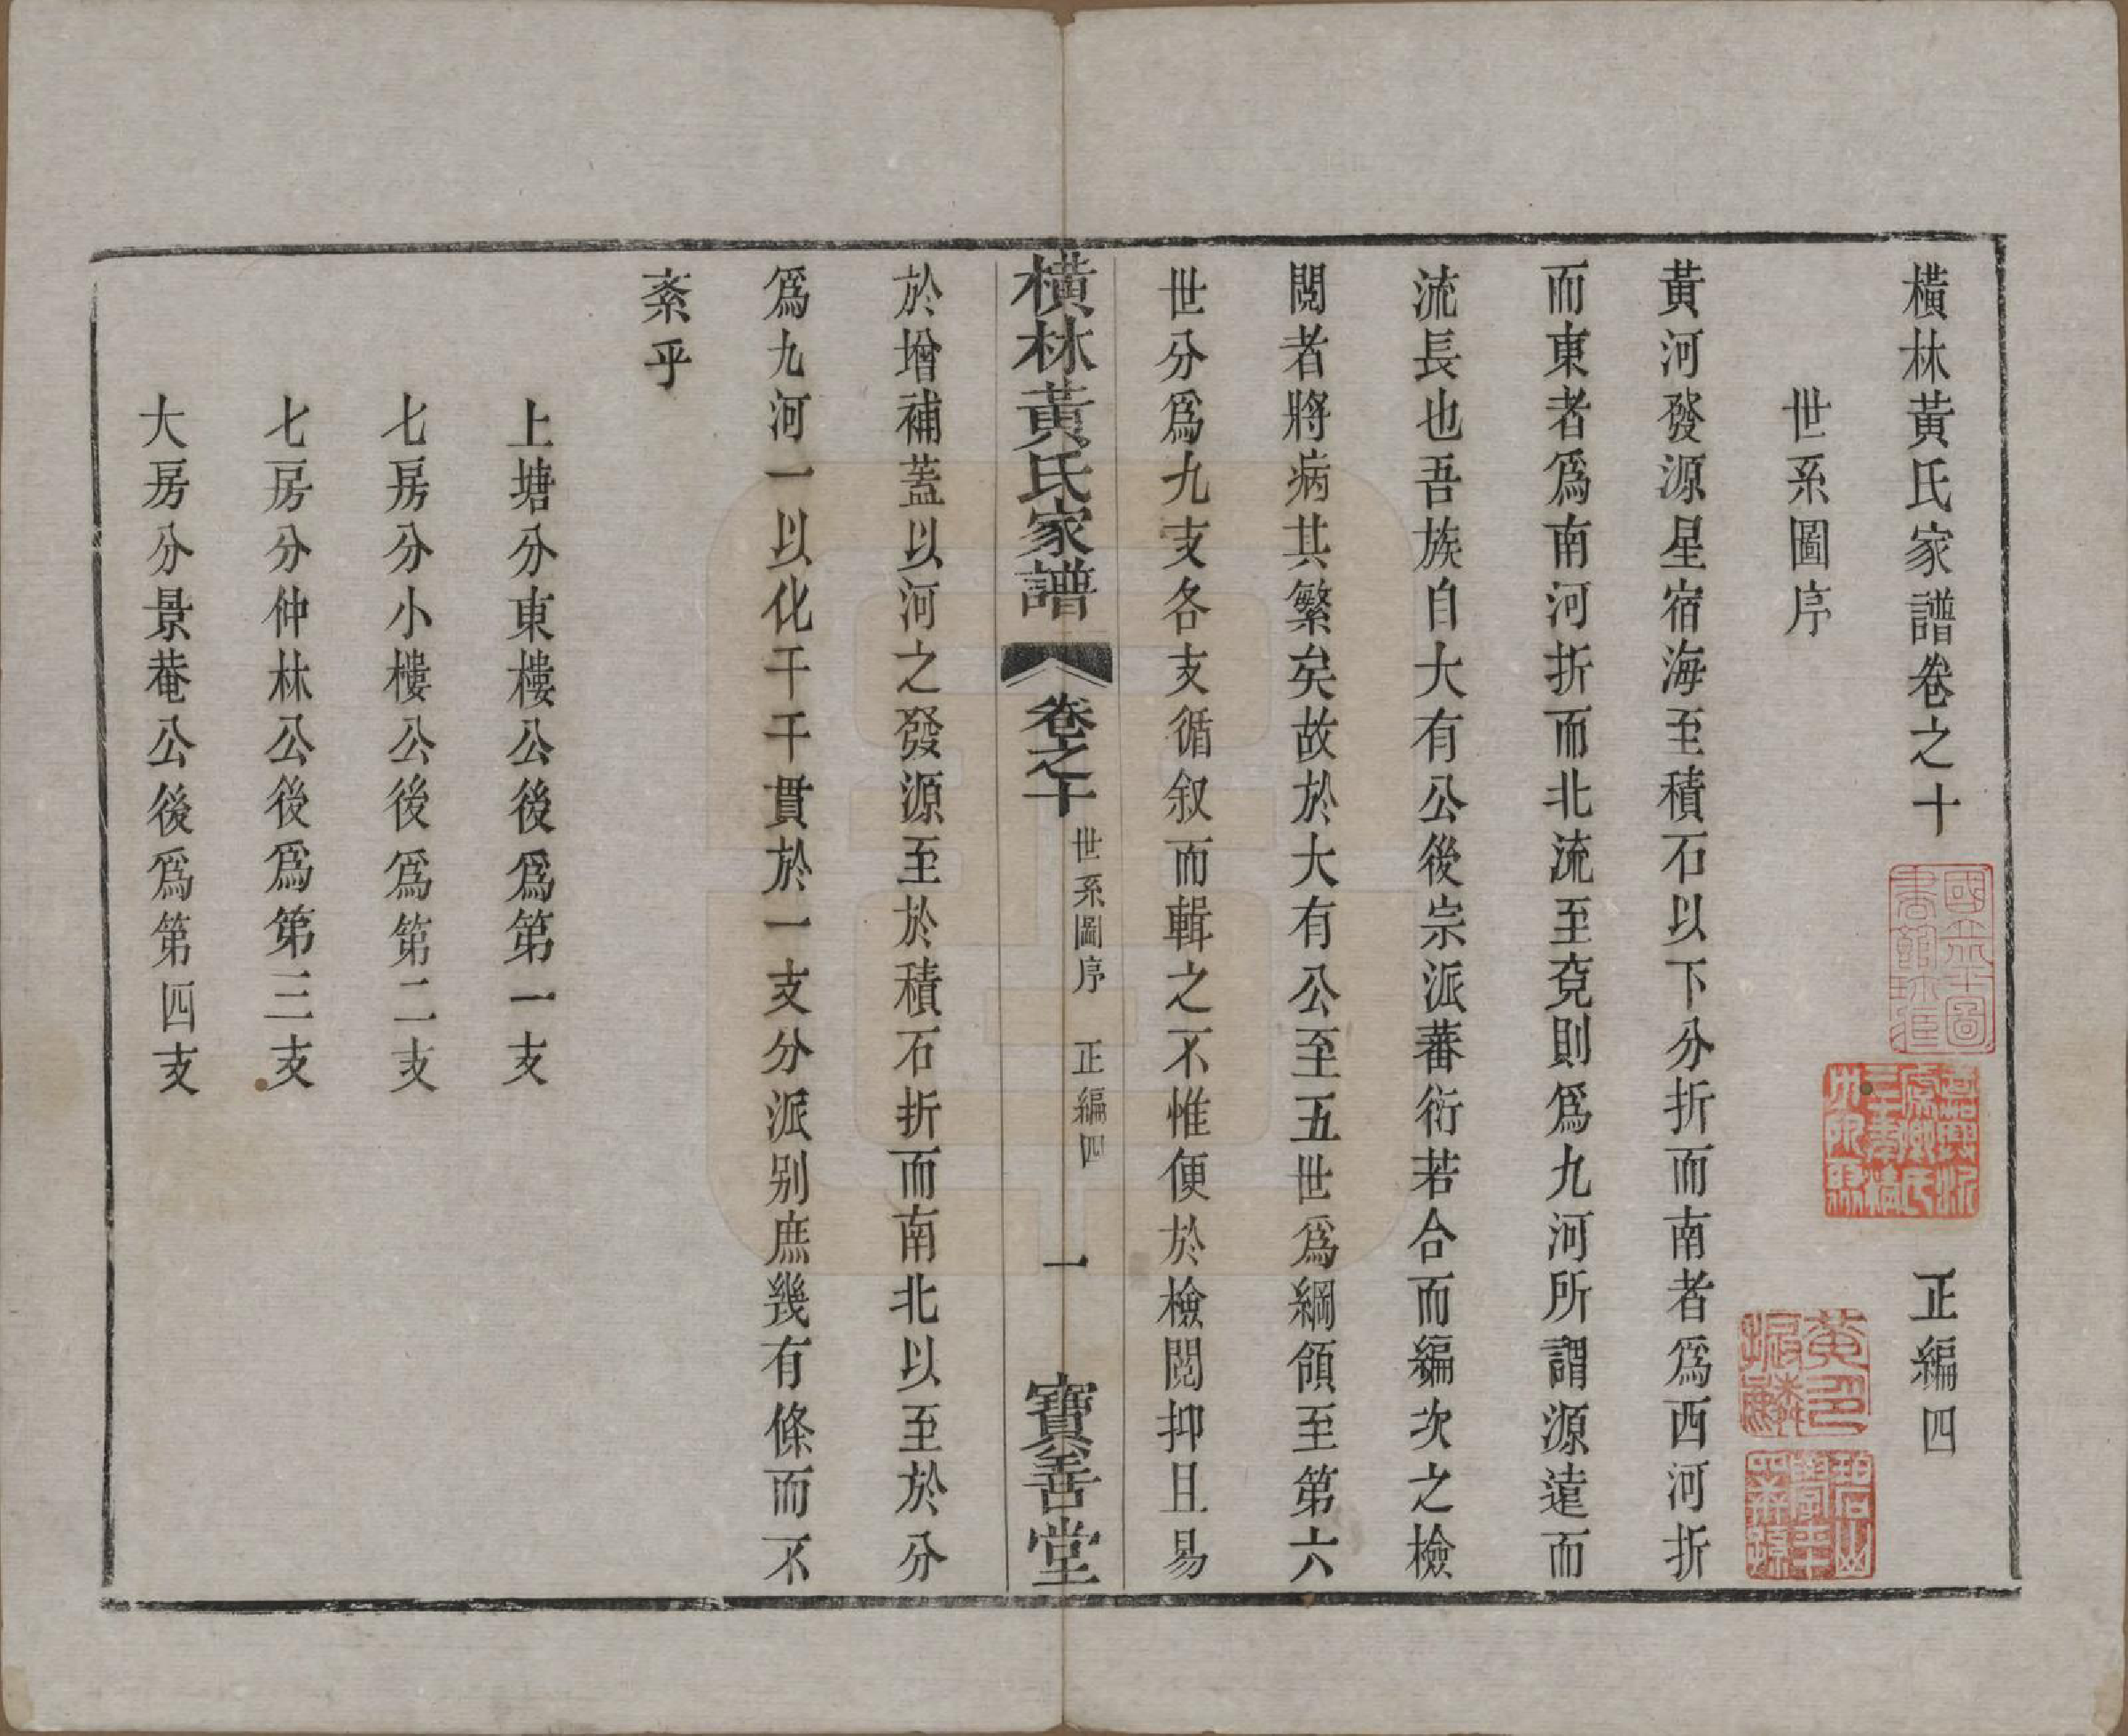 橫林黃氏家譜卷之十 正編四
世系圖序
黃河發源星宿海至積石以下分折而南者爲西河折
而東者爲南河折而北流至兗則爲九河所謂源遠而
流長也吾族自大有公後宗派蕃衍若合而編次之檢
閱者將病其繁矣故於大有公至五世爲綱領至第六
世分爲九支各支循叙而輯之不惟便於檢閱抑且易
橫林黃氏家譜 卷之十 世系圖序 正編四 一 寶善堂
於增補蓋以河之發源至於積石折而南北以至於分
爲九河一以化千千貫於一支分派别庶幾有條而不
紊乎
上塘分東樓公後爲第一支
七房分小樓公後爲第二支
七房分仲林公後爲第三支
大房分景菴公後爲第四支
國立北平圖書館珍藏
黃印振麟